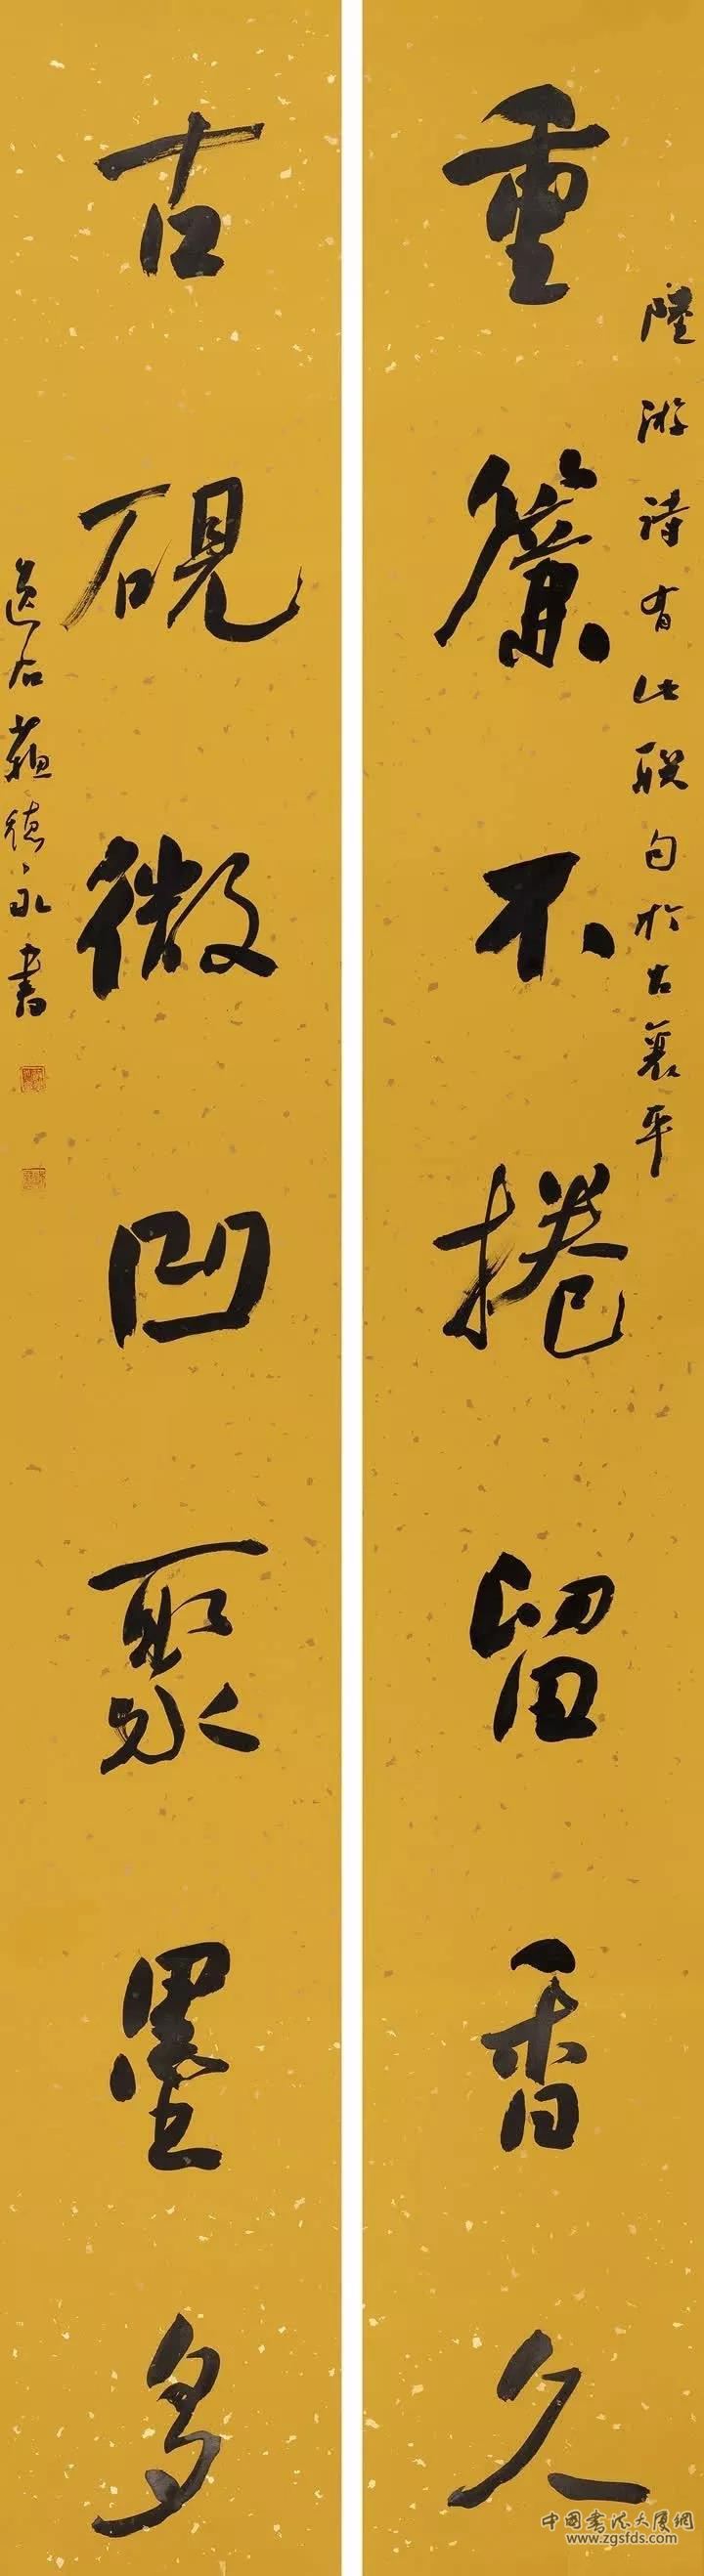 重簾不捲留香久
陸游诗有此联句於古襄平
古硯微凹聚墨多
蘇德永書
中国书法大厦網
www.zgsfds.com